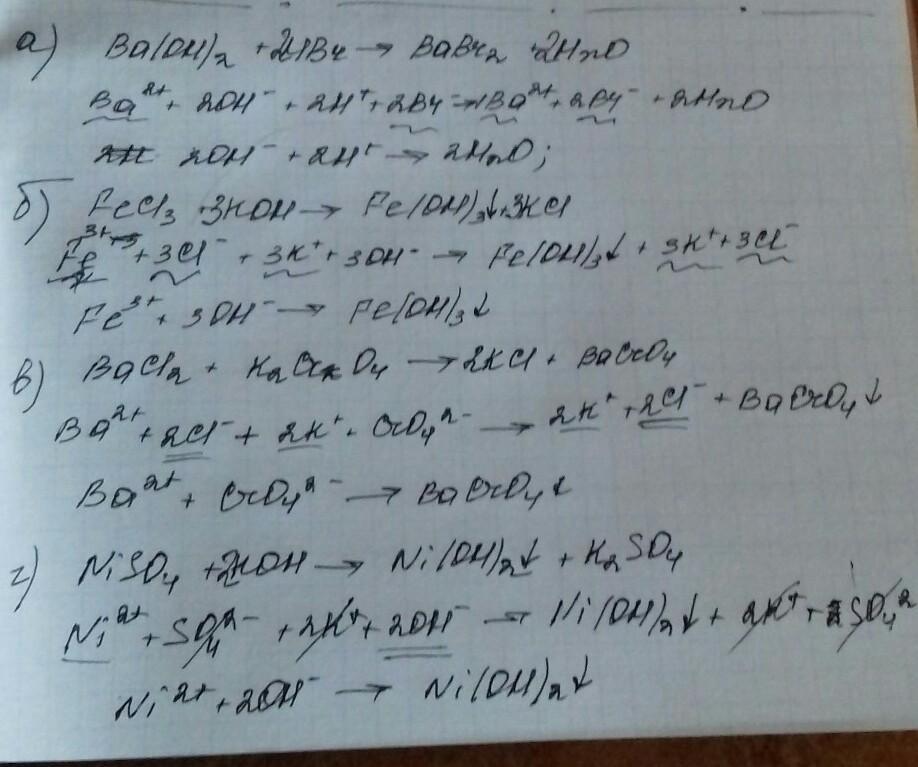 а) Ba(OH)₂ + 2HBr → BaBr₂ + 2H₂O
Ba²⁺ + 2OH⁻ + 2H⁺ + 2Br⁻ → Ba²⁺ + 2Br⁻ + 2H₂O
2OH⁻ + 2H⁺ → 2H₂O;
б) FeCl₃ + 3KOH → Fe(OH)₃↓ + 3KCl
Fe³⁺ + 3Cl⁻ + 3K⁺ + 3OH⁻ → Fe(OH)₃↓ + 3K⁺ + 3Cl⁻
Fe³⁺ + 3OH⁻ → Fe(OH)₃↓
в) BaCl₂ + K₂CrO₄ → 2KCl + BaCrO₄
Ba²⁺ + 2Cl⁻ + 2K⁺ + CrO₄²⁻ → 2K⁺ + 2Cl⁻ + BaCrO₄↓
Ba²⁺ + CrO₄²⁻ → BaCrO₄↓
г) NiSO₄ + 2KOH → Ni(OH)₂↓ + K₂SO₄
Ni²⁺ + SO₄²⁻ + 2K⁺ + 2OH⁻ → Ni(OH)₂↓ + 2K⁺ + SO₄²
Ni²⁺ + 2OH⁻ → Ni(OH)₂↓